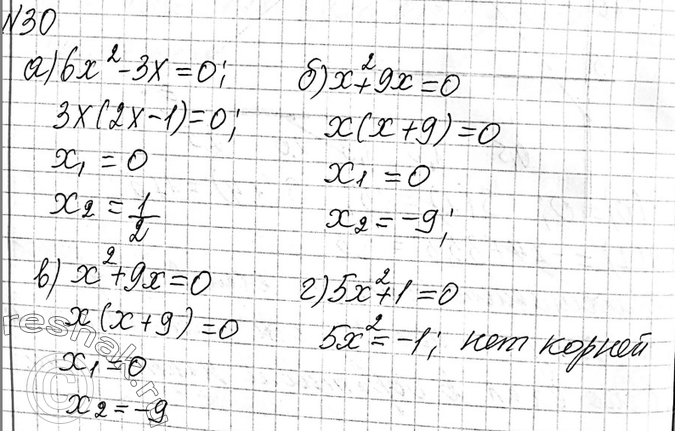 №30
а) 6x² - 3x = 0;
3x(2x - 1) = 0;
x₁ = 0
x₂ = 1/2
б) x² + 9x = 0
x(x + 9) = 0
x₁ = 0
x₂ = -9;
в) x² + 9x = 0
x(x + 9) = 0
x₁ = 0
x₂ = -9
г) 5x² + 1 = 0
5x² = -1; нет корней
reshak.ru